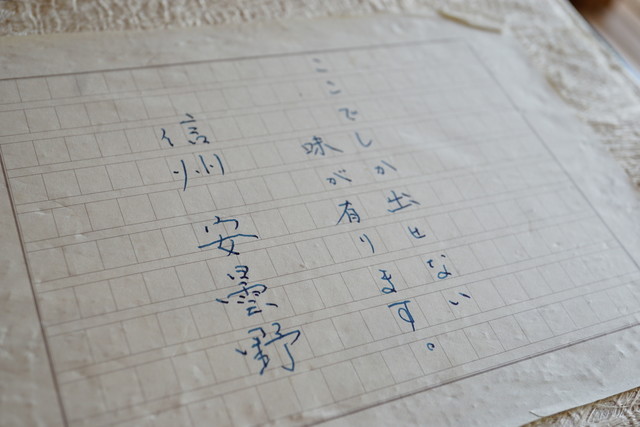 ここでしか出せない
味が有ります。
信州 安曇野